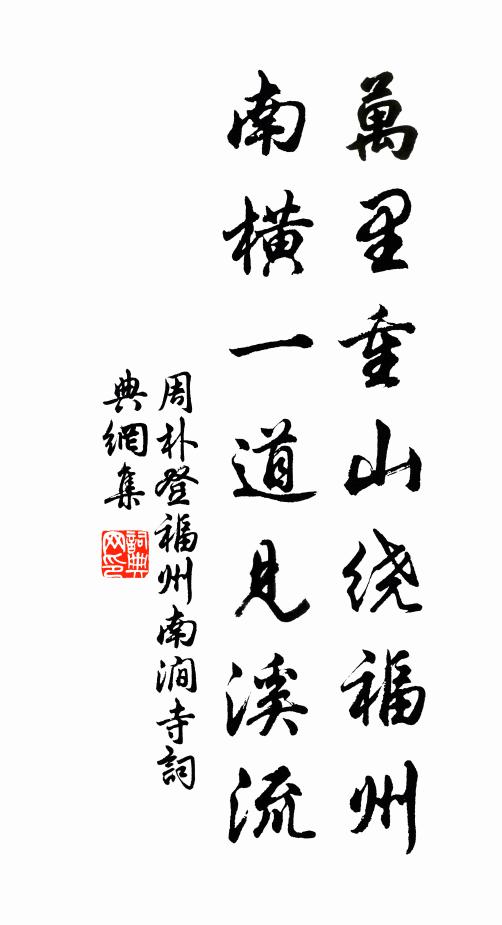 萬里重山绕福州
南橫一道見溪流
周朴登福州南澗寺詞
典網集
詞典网印